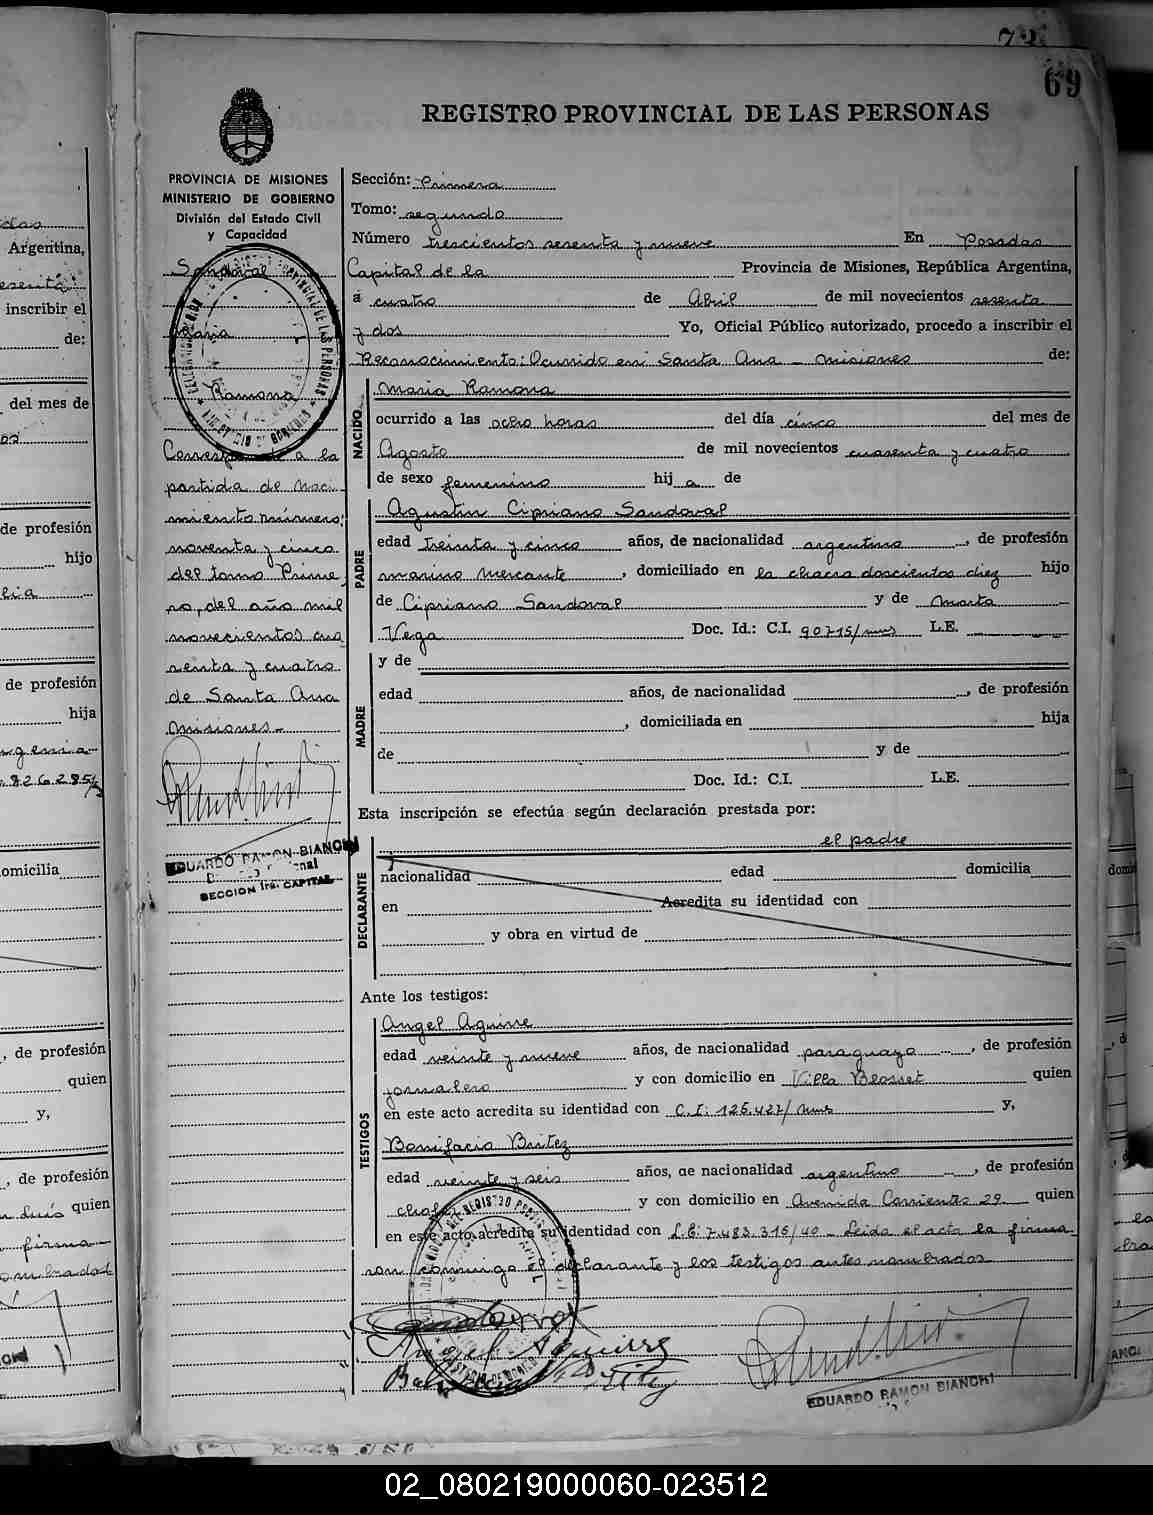 73
69
REGISTRO PROVINCIAL DE LAS PERSONAS
PROVINCIA DE MISIONES
MINISTERIO DE GOBIERNO
División del Estado Civil
y Capacidad
Sandoval
Maria
Ramona
Corresponde a la
partida de Naci
miento número:
noventa y cinco
del tomo Prime
ro, del año mil
novecientos cua
renta y cuatro
de Santa Ana
Misiones.-
EDUARDO RAMON BIANCHI
SECCION 1ra. CAPITAL
Sección: Primera
Tomo: segundo
Número trescientos sesenta y nueve En Posadas
Capital de la Provincia de Misiones, República Argentina,
a cuatro de Abril de mil novecientos sesenta
y dos Yo, Oficial Público autorizado, procedo a inscribir el
Reconocimiento: Ocurrido en Santa Ana - Misiones de:
NACIDO
Maria Ramona
ocurrido a las ocho horas del día cinco del mes de
Agosto de mil novecientos cuarenta y cuatro
de sexo femenino hija de
PADRE
Agustin Cipriano Sandoval
edad treinta y cinco años, de nacionalidad argentino, de profesión
marino mercante, domiciliado en la chacra doscientos diez hijo
de Cipriano Sandoval y de Marta
Vega Doc. Id.: C.I. 90715/mns L.E.
MADRE
y de
edad años, de nacionalidad , de profesión
, domiciliada en hija
de y de
Doc. Id.: C.I. L.E.
Esta inscripción se efectúa según declaración prestada por:
el padre
DECLARANTE
nacionalidad edad domicilia
en Acredita su identidad con
y obra en virtud de
Ante los testigos:
TESTIGOS
Angel Aguirre
edad veinte y nueve años, de nacionalidad paraguayo, de profesión
jornalero y con domicilio en Villa Blosset quien
en este acto acredita su identidad con C.I: 125.427/mns y,
Bonifacio Britez
edad veinte y seis años, de nacionalidad argentino, de profesión
y con domicilio en Avenida Corrientes 29 quien
en este acto acredita su identidad con L.E. 7.483.315/40 - Leida el acta la firma
ron conmigo el declarante y los testigos antes nombrados
EDUARDO RAMON BIANCHI
Argentina,
inscribir el
de:
del mes de
de profesión
hijo
de profesión
hija
omicilia
, de profesión
quien
y,
, de profesión
quien
firma-
ombrados
02_080219000060-023512